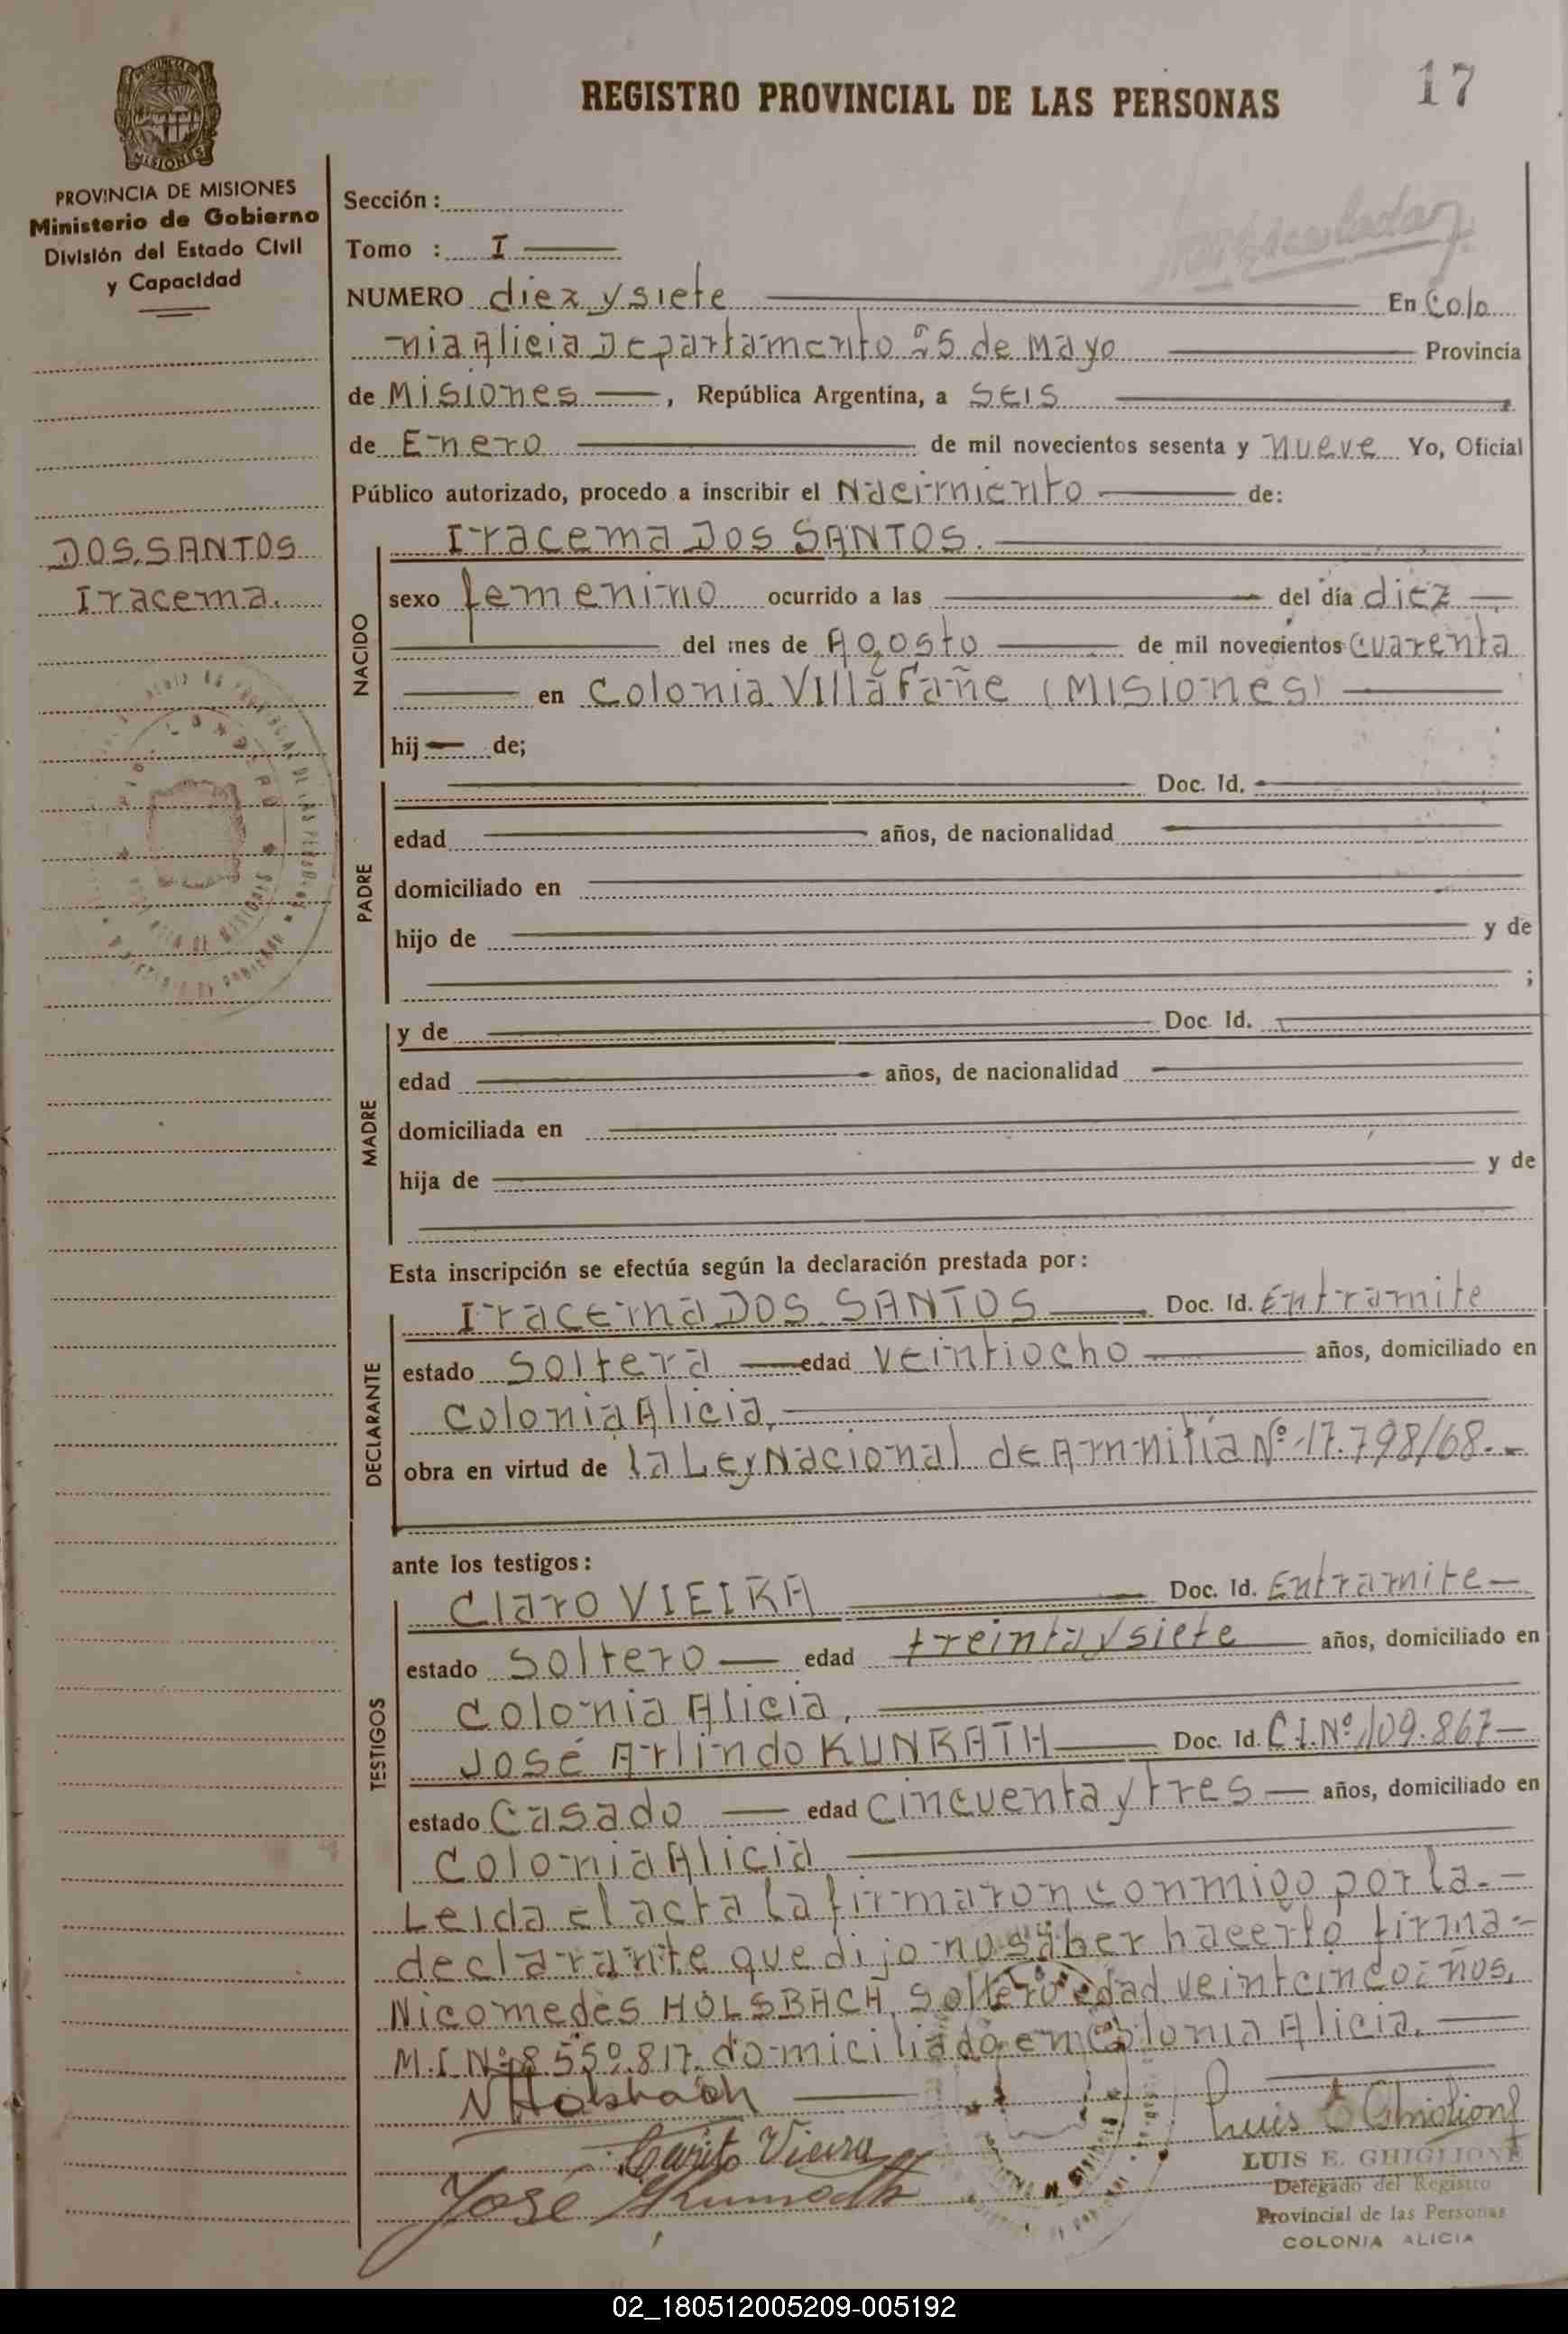 17
REGISTRO PROVINCIAL DE LAS PERSONAS
PROVINCIA DE MISIONES
Ministerio de Gobierno
División del Estado Civil
y Capacidad
DOS SANTOS
Iracema.
Sección:
Tomo : I
NUMERO diez y siete En Colo
nia Alicia Departamento 25 de Mayo Provincia
de Misiones, República Argentina, a SEIS
de Enero de mil novecientos sesenta y nueve Yo, Oficial
Público autorizado, procedo a inscribir el Nacimiento de:
NACIDO
Iracema Dos SANTOS.
sexo femenino ocurrido a las del día diez
del mes de Agosto de mil novecientos cuarenta
en Colonia Villafañe (Misiones)
hij de;
PADRE
Doc. Id.
edad años, de nacionalidad
domiciliado en
hijo de y de
;
MADRE
y de Doc. Id.
edad años, de nacionalidad
domiciliada en
hija de y de
Esta inscripción se efectúa según la declaración prestada por:
DECLARANTE
Iracema DOS SANTOS Doc. Id. Entramite
estado soltera edad veintiocho años, domiciliado en
Colonia Alicia,
obra en virtud de la Ley Nacional de Amnitía Nº 17.798/68.-
ante los testigos:
TESTIGOS
Claro VIEIRA Doc. Id. Entramite
estado Soltero edad treinta y siete años, domiciliado en
Colonia Alicia,
José Arlindo KUNRATH Doc. Id. C.I. Nº 109.867
estado Casado edad Cincuenta y tres años, domiciliado en
Colonia Alicia
Leida el acta la firmaron conmigo por la.-
declarante que dijo no saber hacerlo firma=
Nicomedes HOLSBACH, soltero edad veintcinco años,
M.I. Nº 8.550.817. domiciliado en Colonia Alicia.
NHolsbach
Vieira
José Kunrath
Luis E Ghiglione
LUIS E. GHIGLIONE
Delegado del Registro
Provincial de las Personas
COLONIA ALICIA
02_180512005209-005192